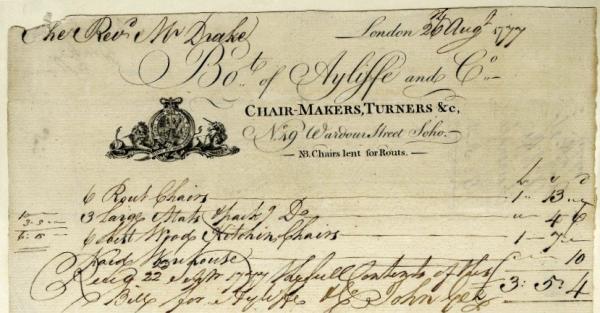 The Revd. Mr Drake London 26 Augt 1777
Bot. of Ayliffe and Co.
CHAIR-MAKERS, TURNERS &c,
No. 49 Wardour Street Soho.
NB. Chairs lent for Routs.
6 Rout Chairs 1 " 13 "
3 large Mats & pack g Do " 4 6
6 best Wood Kitchin Chairs 1 - 7 -
paid Warehouse " - 10
Recd 22 Sepr 1777 the full Contents of this
Bill for Ayliffe & Co John 3: 5: 4